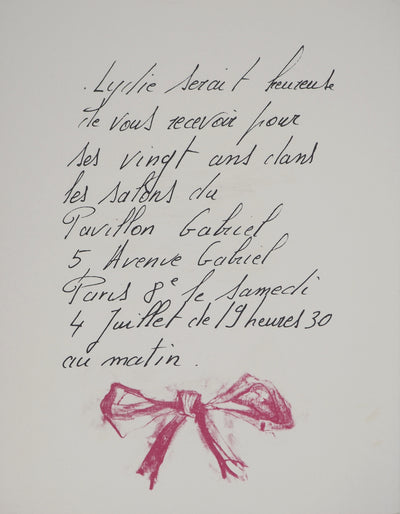 Lydie serait heureuse
de vous recevoir pour
ses vingt ans dans
les salons du
Pavillon Gabriel
5, Avenue Gabriel
Paris 8e le samedi
4 Juillet de 19 heures 30
au matin.